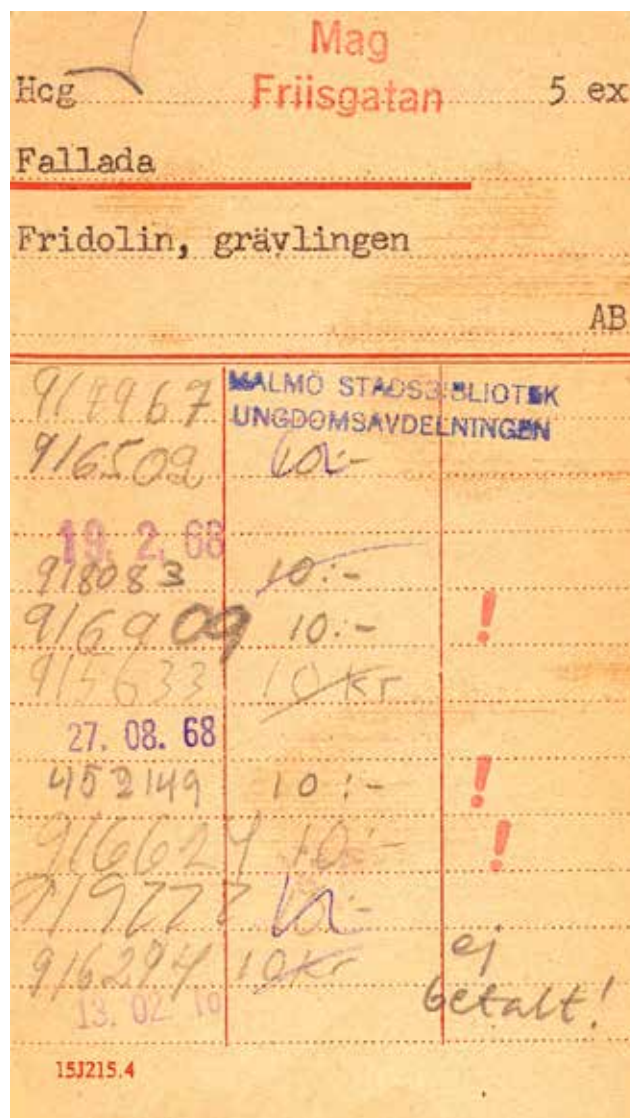 Mag
Hcg Friisgatan 5 ex
Fallada
Fridolin, grävlingen
AB
MALMÖ STADSBIBLIOTEK
914967 UNGDOMSAVDELNINGEN
916502 10:-
19. 2. 68
918083 10:-
916909 10:- !
915633 10 kr
27. 08. 68
452149 10:- !
916624 10:- !
919777 10:-
916294 10 kr ej
13. 02 betalt!
15J215.4